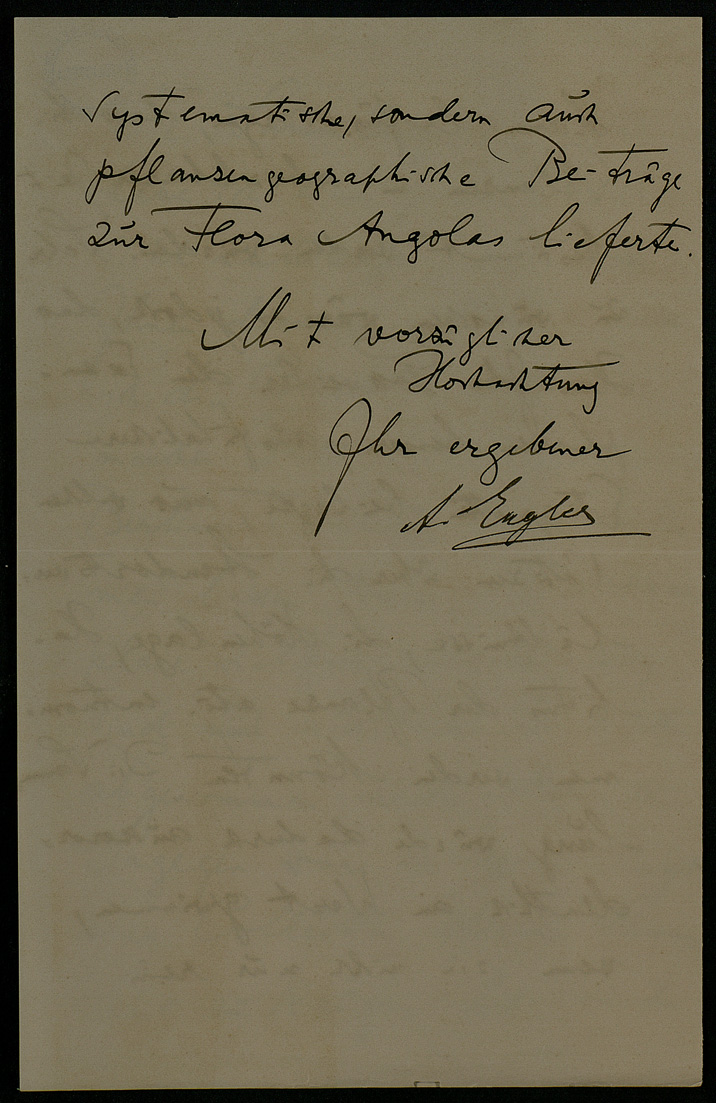 systematische, sondern auch
pflanzengeographische Beiträge
zur Flora Angolas lieferte.
Mit vorzüglicher
Hochachtung
Ihr ergebener
A. Engler